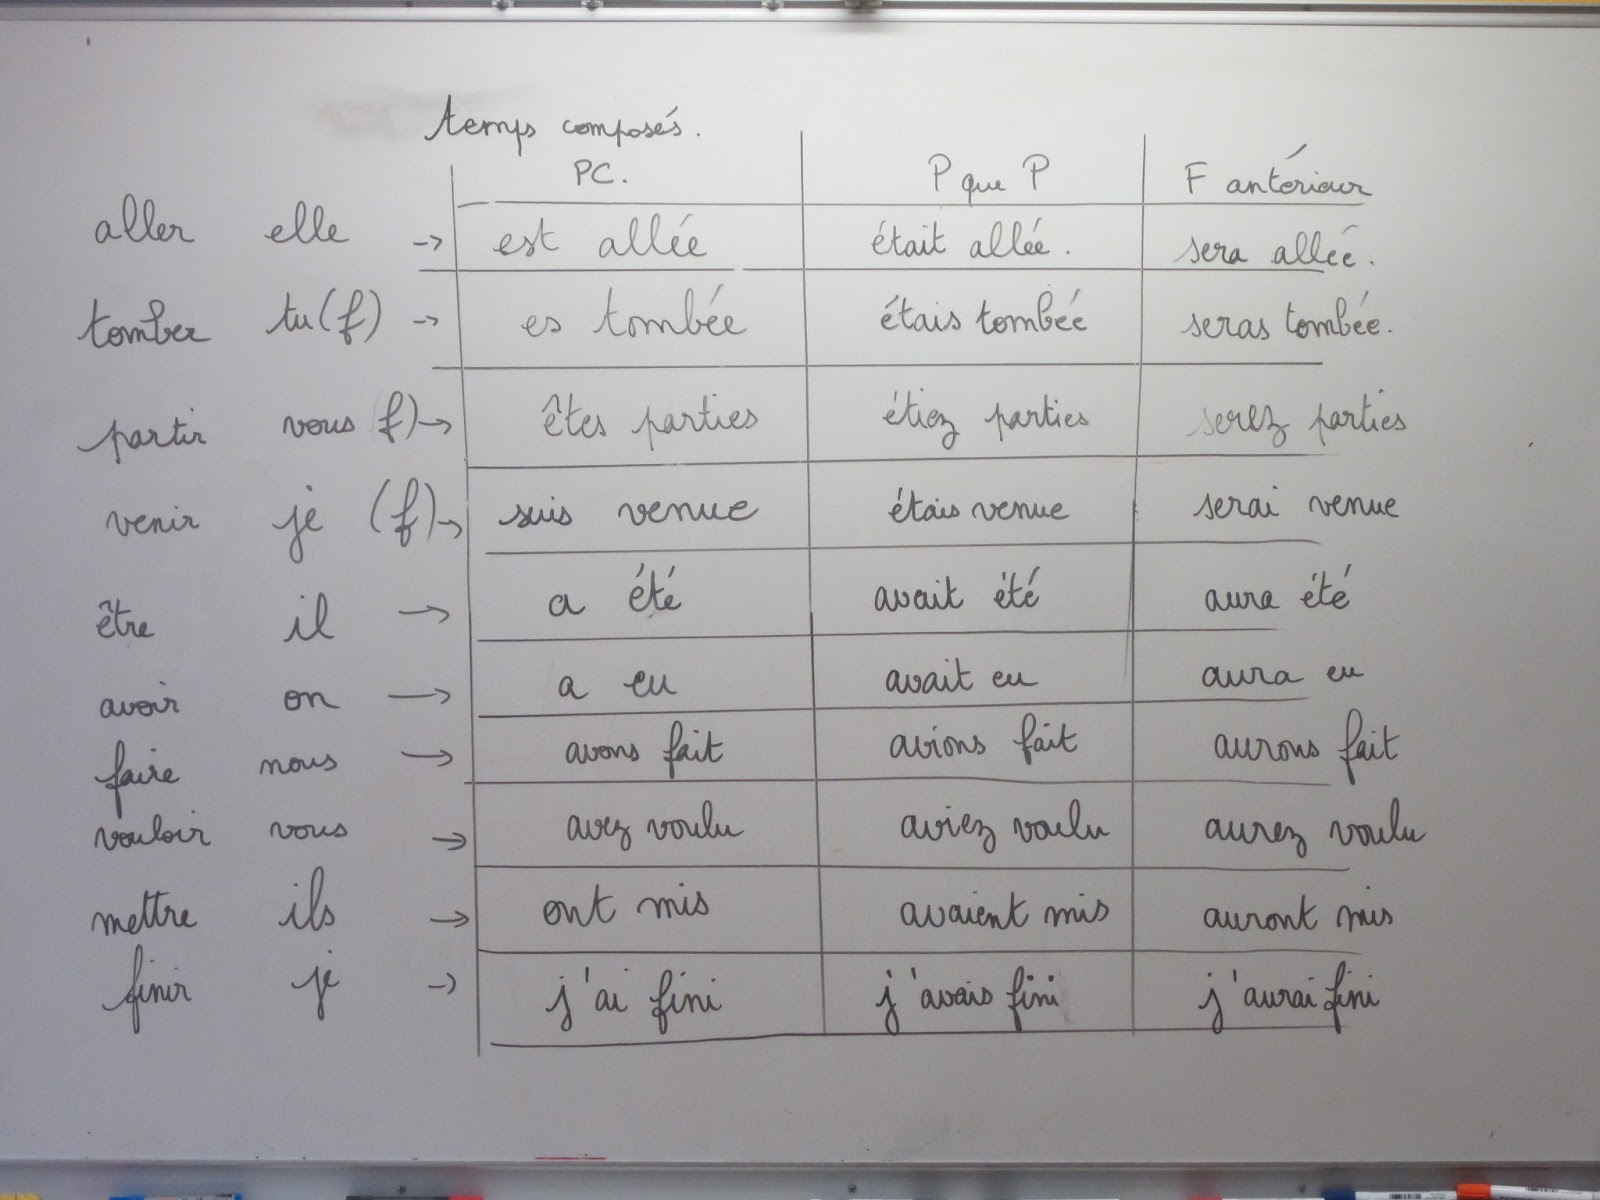 temps composés.
PC. P que P F antérieur
aller elle → est allée était allée. sera allée.
tomber tu (f) → es tombée étais tombée seras tombée.
partir vous (f) → êtes parties étiez parties serez parties
venir je (f) → suis venue étais venue serai venue
être il → a été avait été aura été
avoir on → a eu avait eu aura eu
faire nous → avons fait avions fait aurons fait
vouloir vous → avez voulu aviez voulu aurez voulu
mettre ils → ont mis avaient mis auront mis
finir je → j'ai fini j'avais fini j'aurai fini